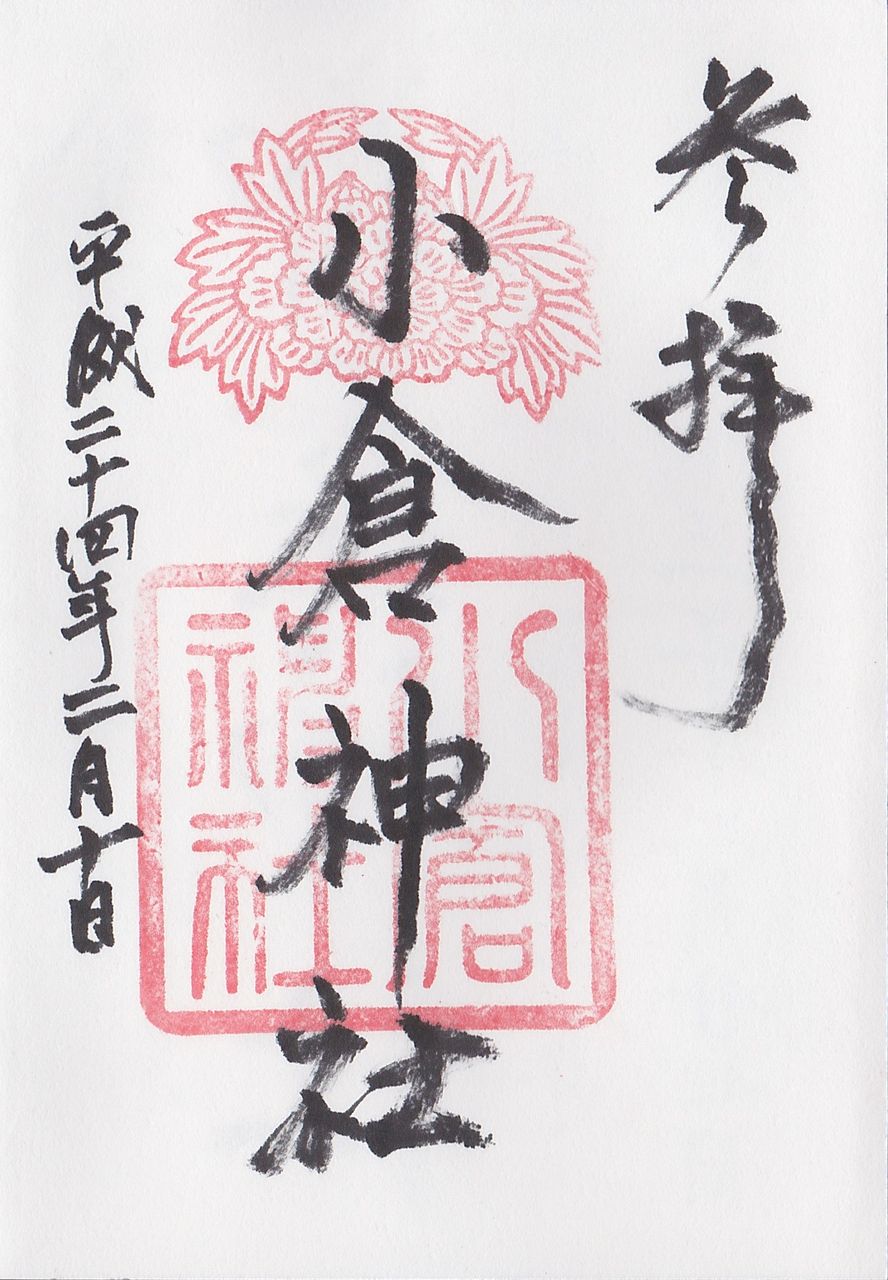 参拝
小倉神社
小倉神社
平成二十四年二月十日